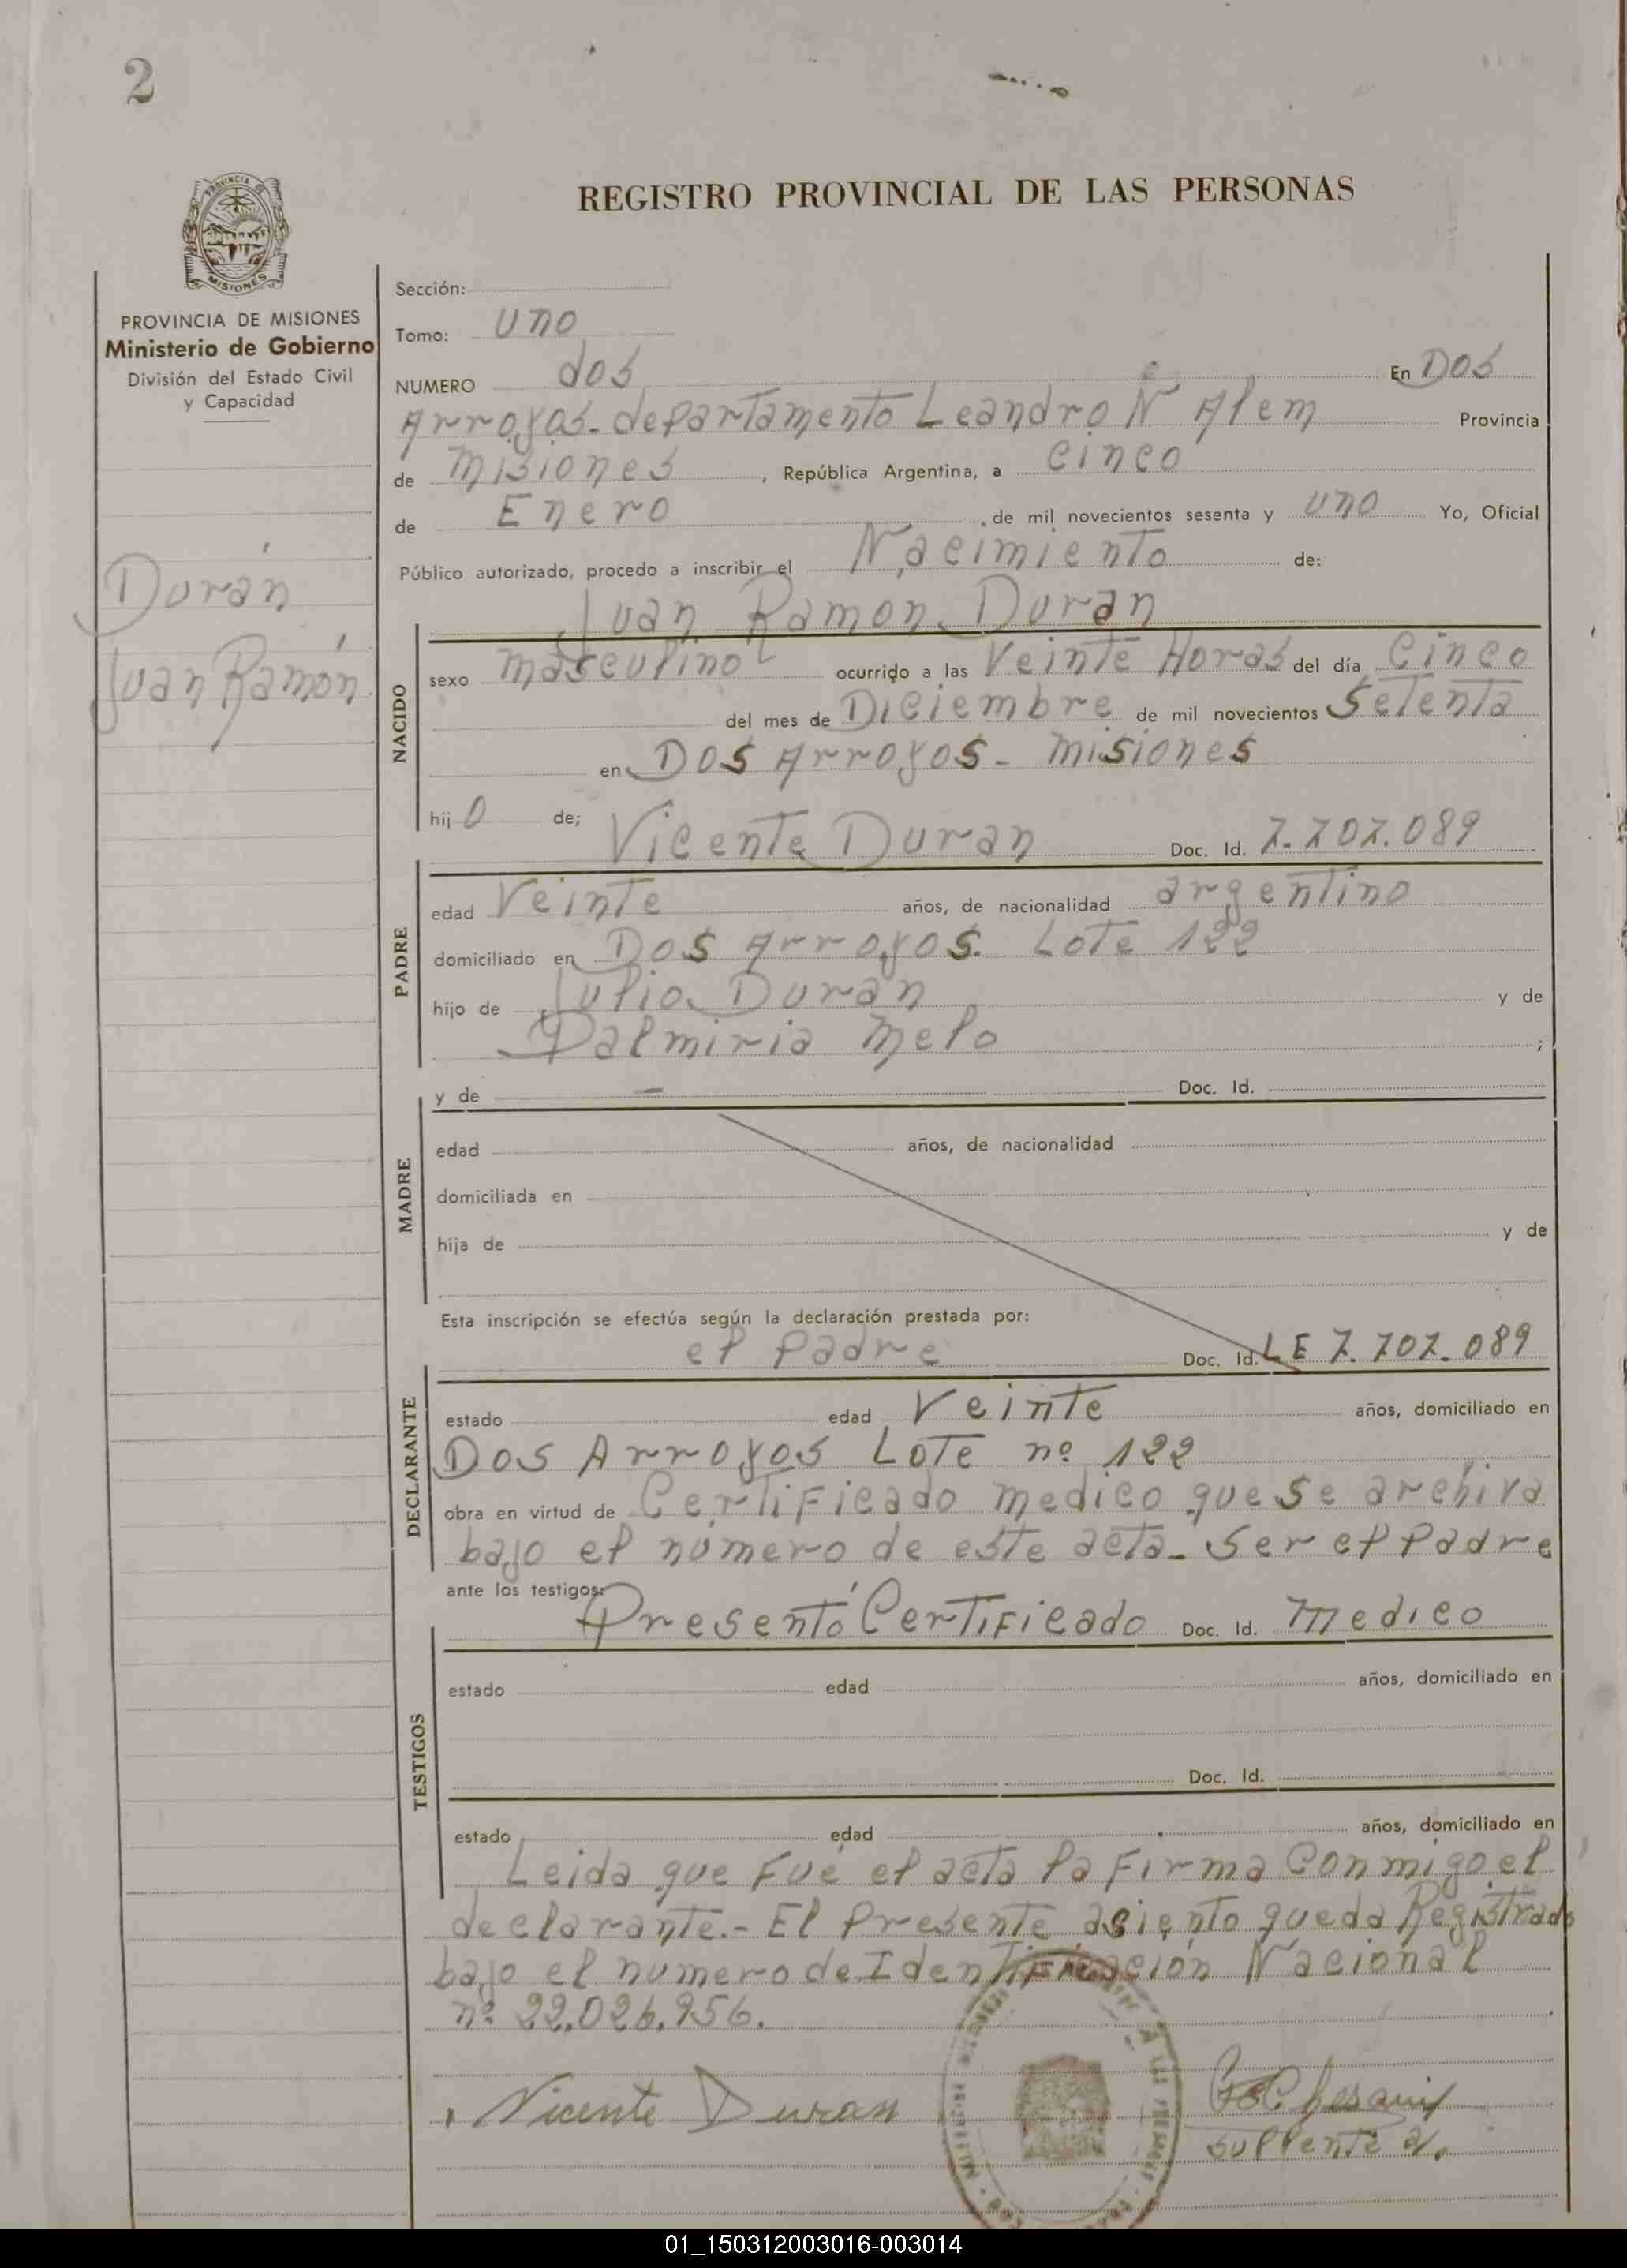 2
REGISTRO PROVINCIAL DE LAS PERSONAS
PROVINCIA
MISIONES
PROVINCIA DE MISIONES
Ministerio de Gobierno
División del Estado Civil
y Capacidad
Durán
Juan Ramón
Sección:
Tomo: uno
NUMERO dos En Dos
Arroyos. departamento Leandro N Alem Provincia
de Misiones, República Argentina, a cinco
de Enero, de mil novecientos sesenta y uno Yo, Oficial
Público autorizado, procedo a inscribir el Nacimiento de:
Juan Ramon Duran
NACIDO
sexo masculino ocurrido a las Veinte Horas del día Cinco
del mes de Diciembre de mil novecientos Setenta
en Dos Arroyos - Misiones
hij o de; Vicente Duran Doc. Id. 7.707.089
PADRE
edad Veinte años, de nacionalidad argentino
domiciliado en Dos Arroyos. Lote 122
hijo de Julio Duran y de
Dalmiria Melo ;
MADRE
y de — Doc. Id.
edad años, de nacionalidad
domiciliada en
hija de y de
Esta inscripción se efectúa según la declaración prestada por:
el Padre Doc. Id. LE 7.707.089
DECLARANTE
estado edad Veinte años, domiciliado en
Dos Arroyos Lote nº 122
obra en virtud de Certificado medico que se archiva
bajo el número de este acta - Ser el Padre
ante los testigos:
Presentó Certificado Doc. Id. Medico
TESTIGOS
estado edad años, domiciliado en
Doc. Id.
estado edad años, domiciliado en
Leida que Fué el acta la Firma Conmigo el
declarante.- El Presente asiento queda Registrado
bajo el numero de Identificación Nacional
nº 22.026.956.
Vicente Duran
suplente
01_150312003016-003014